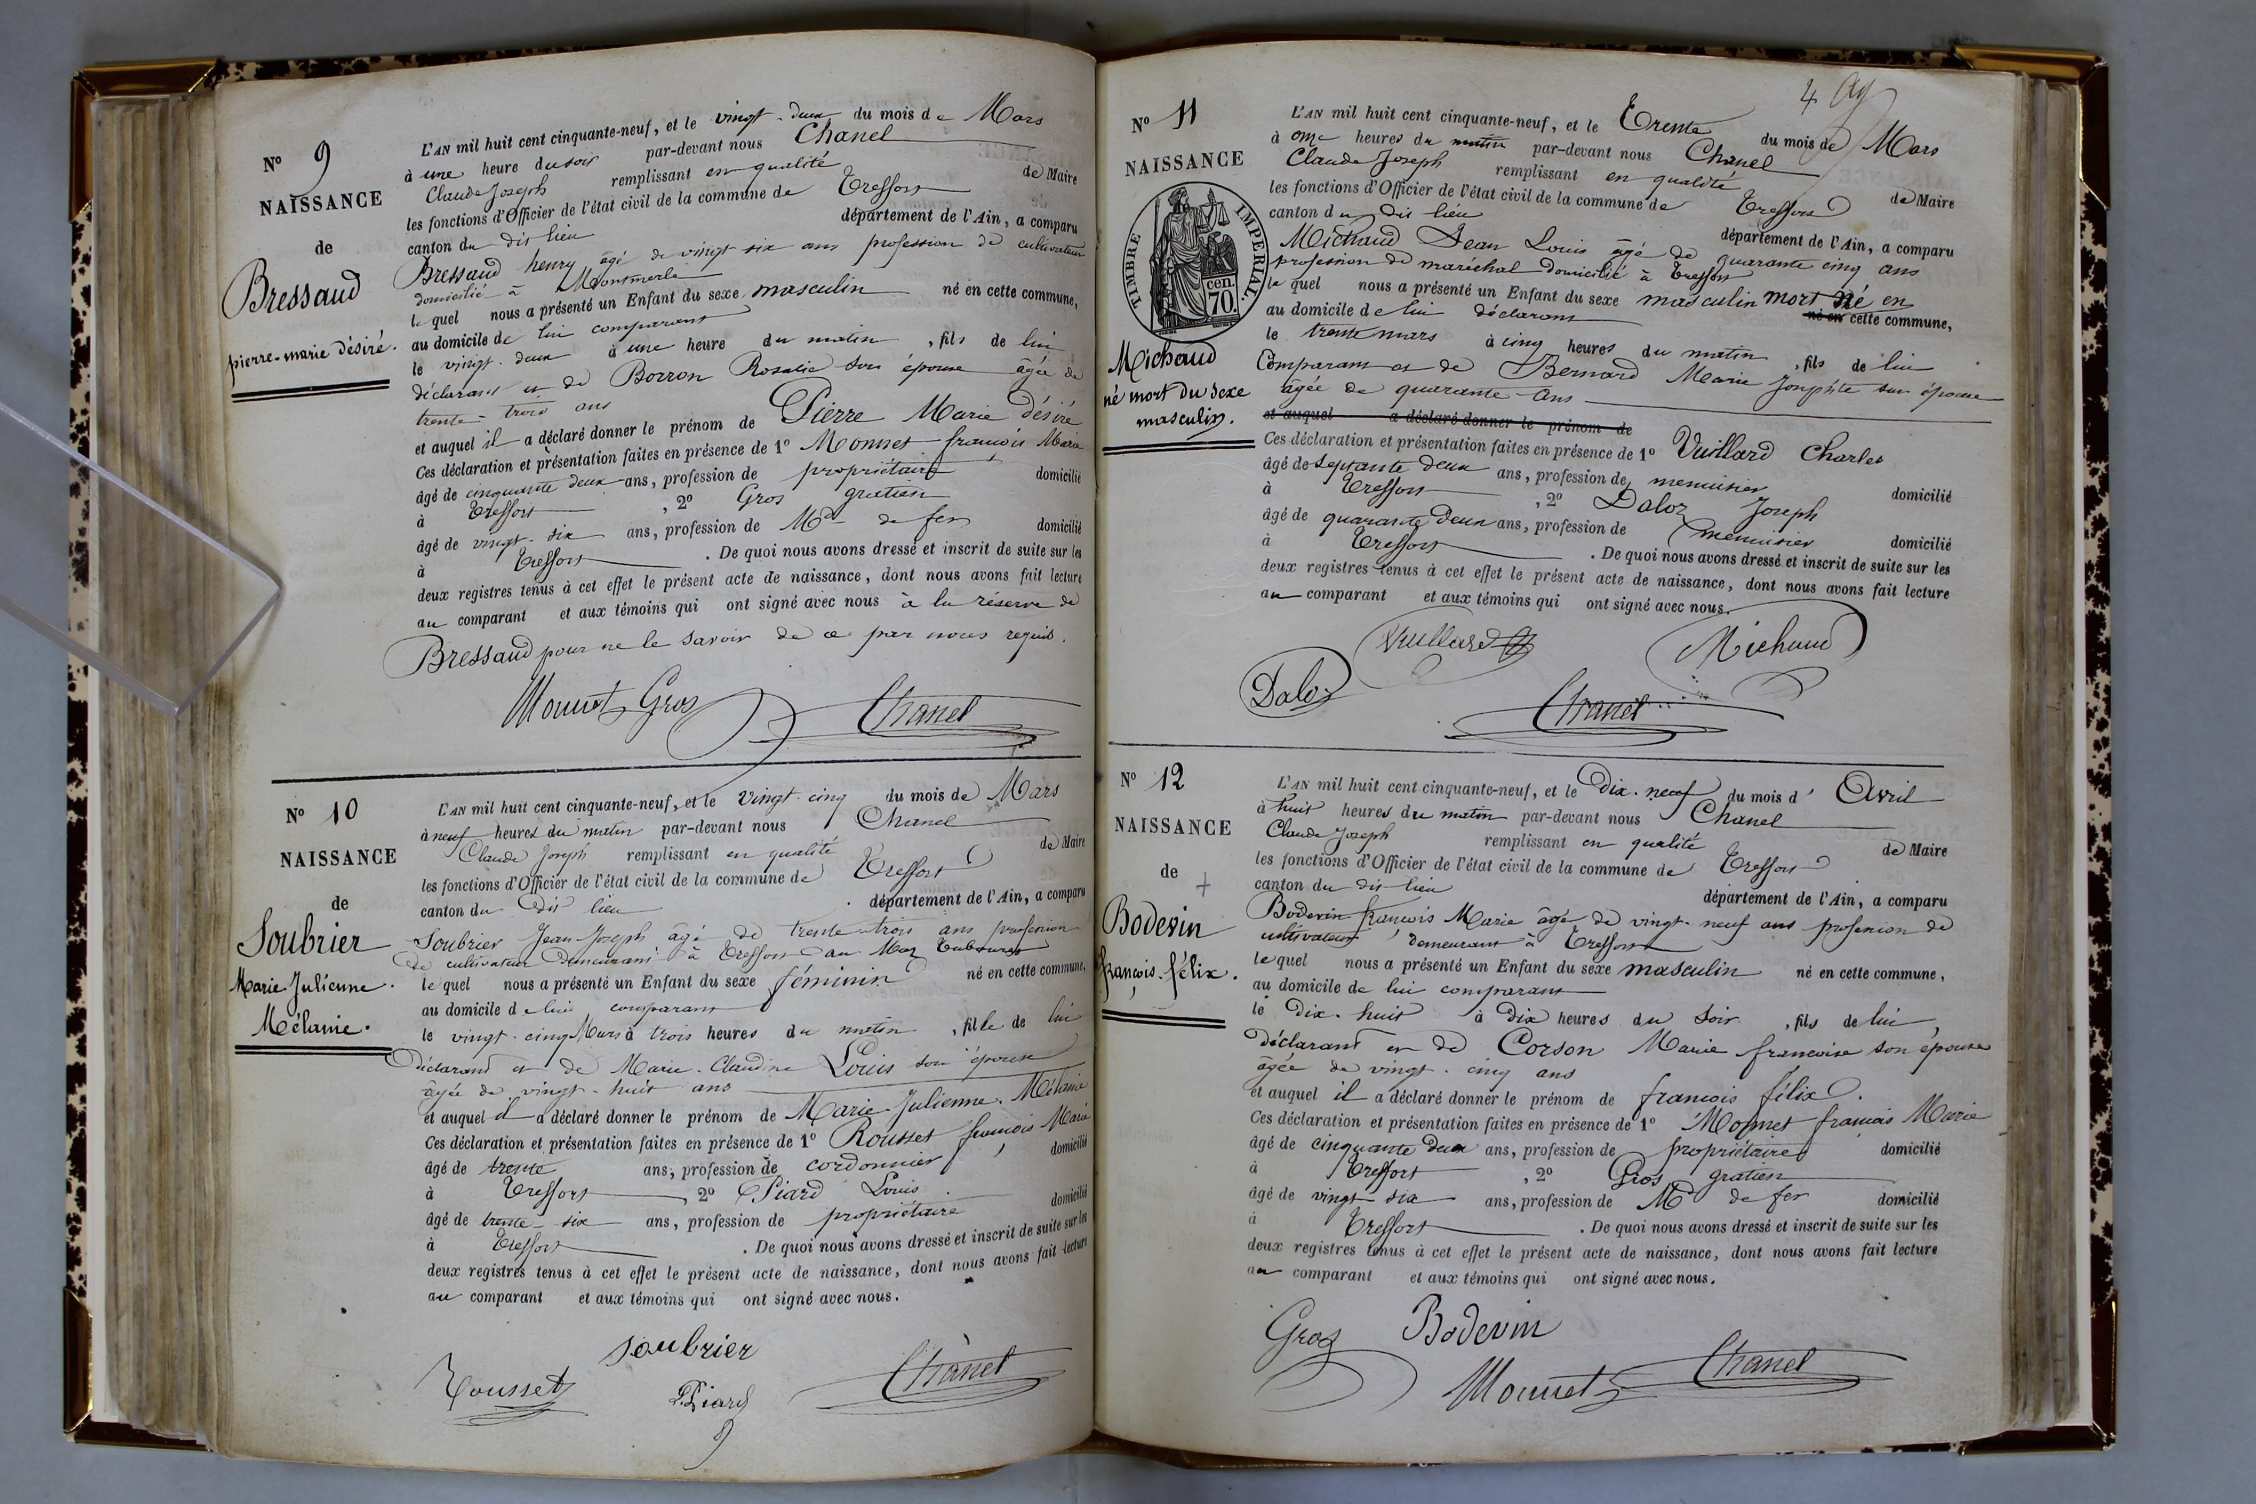 N° 9
NAISSANCE
de
Bressaud
pierre-marie désiré.
L'AN mil huit cent cinquante-neuf, et le vingt-deux du mois de Mars
à une heure du soir par-devant nous Chanel
Claude Joseph remplissant en qualité de Maire
les fonctions d'Officier de l'état civil de la commune de Treffort
canton du dis lieu département de l'Ain, a comparu
Bressaud henry âgé de vingt six ans profession de cultivateur
domicilié à Montmerle
le quel nous a présenté un Enfant du sexe masculin né en cette commune,
au domicile de lui comparant
le vingt-deux à une heure du matin, fils de lui
déclarant et de Borron Rosalie son épouse âgée de
trente-trois ans
et auquel il a déclaré donner le prénom de Pierre Marie désiré
Ces déclaration et présentation faites en présence de 1° Monnet françois Marie
âgé de cinquante deux ans, profession de propriétaire domicilié
à Treffort, 2° Gros gratien
âgé de vingt-six ans, profession de Md de fer domicilié
à Treffort. De quoi nous avons dressé et inscrit de suite sur les
deux registres tenus à cet effet le présent acte de naissance, dont nous avons fait lecture
au comparant et aux témoins qui ont signé avec nous à la réserve de
Bressaud pour ne le savoir de ce par nous requis.
Monnet Gros Chanel
N° 10
NAISSANCE
de
Soubrier
Marie Julienne.
Mélanie.
L'AN mil huit cent cinquante-neuf, et le vingt-cinq du mois de Mars
à neuf heures du matin par-devant nous Chanel
Claude Joseph remplissant en qualité de Maire
les fonctions d'Officier de l'état civil de la commune de Treffort
canton du dis lieu département de l'Ain, a comparu
Soubrier Jean-Joseph âgé de trente-trois ans profession
de cultivateur demeurant à Treffort au Maz
le quel nous a présenté un Enfant du sexe féminin né en cette commune,
au domicile de lui comparant
le vingt-cinq Mars à trois heures du matin, fille de lui
Déclarant et de Marie-Claudine Louis son épouse
âgée de vingt-huit ans
et auquel il a déclaré donner le prénom de Marie-Julienne-Mélanie
Ces déclaration et présentation faites en présence de 1° Rousset françois Marie
âgé de trente ans, profession de cordonnier, domicilié
à Treffort, 2° Piard Louis
âgé de trente-six ans, profession de propriétaire domicilié
à Treffort. De quoi nous avons dressé et inscrit de suite sur les
deux registres tenus à cet effet le présent acte de naissance, dont nous avons fait lecture
au comparant et aux témoins qui ont signé avec nous.
Soubrier
Rousset Piard Chanel
4
N° 11
NAISSANCE
TIMBRE IMPERIAL.
cen.
70.
Michaud
né mort du sexe
masculin.
L'AN mil huit cent cinquante-neuf, et le Trente du mois de Mars
à onze heures du matin par-devant nous Chanel
Claude Joseph remplissant en qualité de Maire
les fonctions d'Officier de l'état civil de la commune de Treffort
canton du dis lieu département de l'Ain, a comparu
Michaud Jean Louis âgé de quarante cinq ans
profession de maréchal domicilié à Treffort
le quel nous a présenté un Enfant du sexe masculin mort né en
né en cette commune,
au domicile de lui déclarant
le trente mars à cinq heures du matin, fils de lui
Comparant et de Bernard Marie Josephte son épouse
âgée de quarante ans
et auquel a déclaré donner le prénom de
Ces déclaration et présentation faites en présence de 1° Vuillard Charles
âgé de septante deux ans, profession de menuisier domicilié
à Treffort, 2° Daloz Joseph
âgé de quarante deux ans, profession de menuisier domicilié
à Treffort. De quoi nous avons dressé et inscrit de suite sur les
deux registres tenus à cet effet le présent acte de naissance, dont nous avons fait lecture
au comparant et aux témoins qui ont signé avec nous.
Vuillard Michaud
Daloz Chanel
N° 12
NAISSANCE
de
Bodevin
françois-félix.
L'AN mil huit cent cinquante-neuf, et le Dix-neuf du mois d'Avril
à huit heures du matin par-devant nous Chanel
Claude Joseph remplissant en qualité de Maire
les fonctions d'Officier de l'état civil de la commune de Treffort
canton du dis lieu département de l'Ain, a comparu
Bodevin françois Marie âgé de vingt-neuf ans profession de
cultivateur demeurant à Treffort
le quel nous a présenté un Enfant du sexe masculin né en cette commune,
au domicile de lui comparant
le dix-huit à Dix heures du soir, fils de lui
déclarant et de Corson Marie françoise son épouse
âgée de vingt-cinq ans
et auquel il a déclaré donner le prénom de françois félix.
Ces déclaration et présentation faites en présence de 1° Monnet françois Marie
âgé de cinquante deux ans, profession de propriétaire domicilié
à Treffort, 2° Gros gratien
âgé de vingt-six ans, profession de Md de fer domicilié
à Treffort. De quoi nous avons dressé et inscrit de suite sur les
deux registres tenus à cet effet le présent acte de naissance, dont nous avons fait lecture
au comparant et aux témoins qui ont signé avec nous.
Gros Bodevin
Monnet Chanel